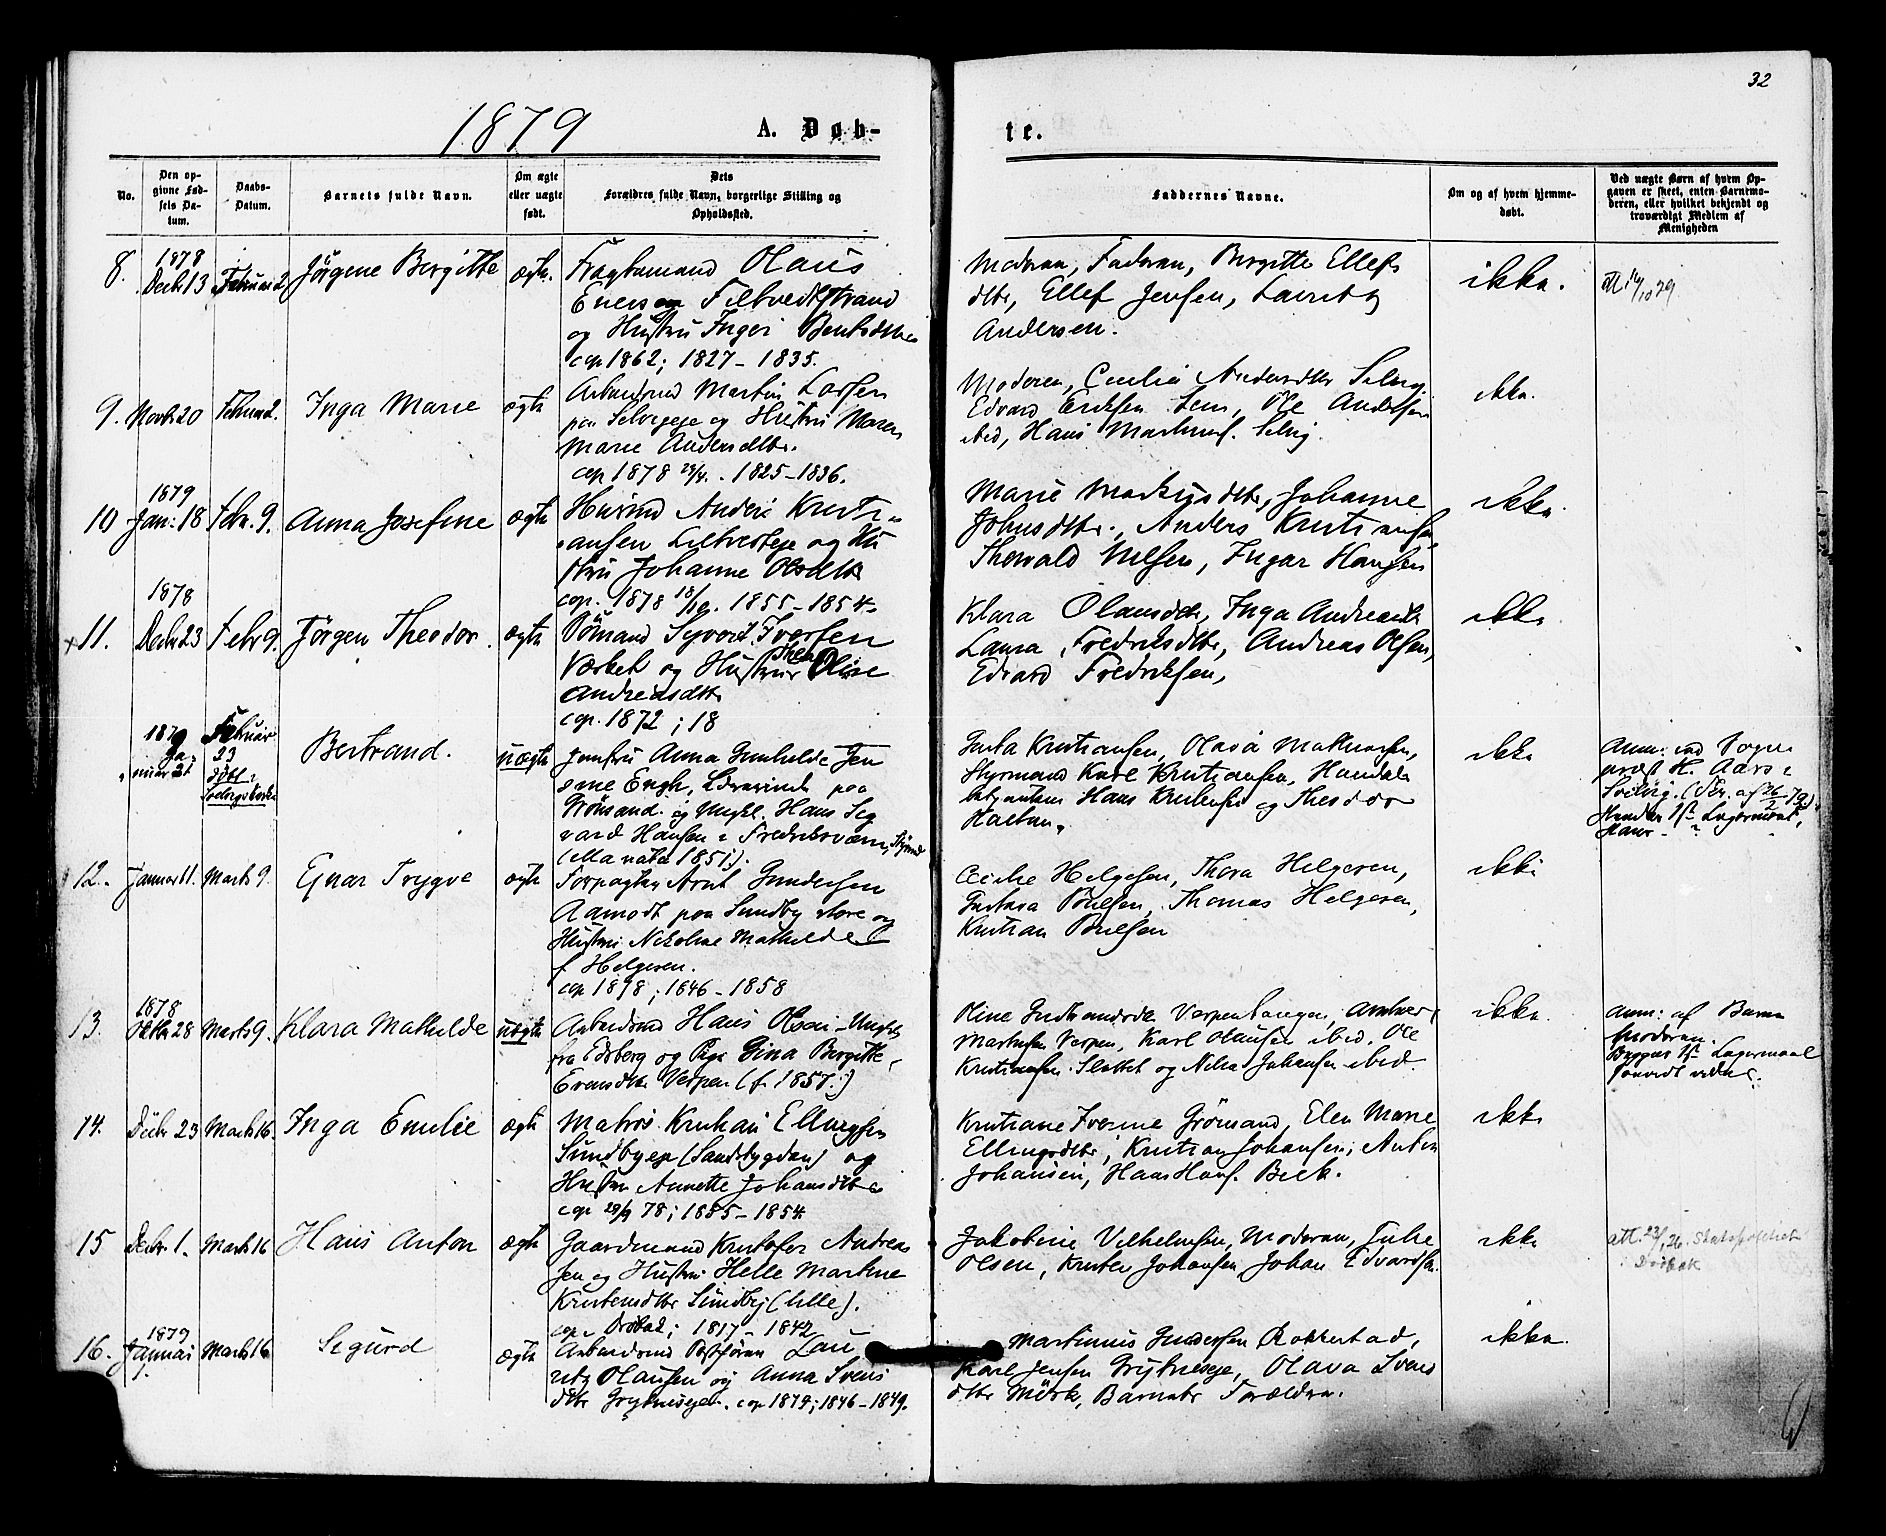 32
1879 A. Døb-
te.
No.
Den op-
givne Fød-
sels Da-
tum.
Daabs-
Datum.
Barnets fulde Navn.
Om ægte
eller uægte
født.
Dets
Forældres fulde Navn, borgerlige Stilling og
Opholdssted.
Faddernes Navne.
Om og af hvem hjemme-
døbt.
Ved uægte Børn af hvem Op-
gaven er skeet, enten Barnemo-
deren, eller hvilket bekjendt og
troværdigt Medlem af
Menigheden
8. 1878
Decbr 13 Februar 2 Jørgine Bergitte ægte.
Fragtemand Olaus
Enersen Filtvedtstrand
og Hustru Inger Bentsdtter
cop 1862; 1827 - 1835.
Moderen, Faderen, Bergitte Ellefs
dtr, Ellef Jensen, Lauritz
Andersen.
ikke.
9. Novbr 20 Februar 2. Inga Marie ægte
Arbeidsmd Martin Larsen
paa Selvigeje og Hustru Maren
Marie Andersdtter.
cop 1878 . 1825 - 1836.
Moderen, Cecilie Andersdtr Selvig
Edvard Eriksen Sem, Ole Andersen
ibid, Hans Martins. Selvig.
ikke.
10 1879
Jan: 18 Febr. 9. Anna Josefine ægte
Husmd Anders Kristi-
ansen og Hu
stru Johanne Olsdtr
cop. 1878 . 1855 - 1854
Marie Markusdtr, Johanne
Johnsdtr., Anders Kristiansen,
Thorvald Nilsen, Ingar Hansen
ikke.
11. 1878
Decbr 23 Febr 9. Jørgen Theodor. ægte
Sömand Syvert Iversen
Værket og Hustru Thea Oline
Andreasdtr
cop. 1872; 18
Klara Olausdtr, Inga Andreasdtr
Laura Fredriksdtr, Andreas Olsen,
Edvard Fredriksen,
ikke
1879
Ja-
nuar 21 Februar
23
døbt i
Bertrand. uægte
Jomfru Anna Gunhilde Jen
sine Engh, Lærerinde paa
Grönsand. og Ungk. Hans Sig
vard Hansen i Fredriksværn, Styrmd
(Ma nata 1851).
Gusta Kristiansen, Olava Mathiesen,
Styrmand Karl Kristiansen, Handels
betjenten Hans Kristensen og Theodor
Haltan.
ikke
Anm: ved Sogne
præst H. Aars i
12. Januar 11. Marts 9. Ejnar Trygve ægte
Forpagter Arnt Gundersen
Aamodt paa Sundby store og
Hustru Nikoline Mathilde
f. Helgesen.
cop 1878; 1846 - 1858
Cecilie Helgesen, Thora Helgesen,
Gustava Poulsen, Thomas Helgesen,
Kristian Poulsen
ikke
13. 1878
Oktbr 28 Marts 9. Klara Mathilde uægte
Arbeidsmd Hans Olsen - Ungk.
fra Edsberg og Pige Gina Bergitte
Evensdtr Verpen (f. 1857.)
Oline Gudbrandsdtr Verpen
Verpen, Karl Olausen ibid. Ole
Kristiansen Slottet og Nils Johansen ibid.
ikke.
Anm: af Barne
moderen.
Lægermaal
14. Decbr 23 Marts 16. Inga Emilie ægte
Matros Kristian Ellingsen
Sundbyeje (Sandbygden) og
Hustru Annette Johansdtr
cop 29/9 78; 1855 - 1854
Kristiane Iversen Grönsand, Elen Marie
Ellingsdtr, Kristian Johansen, Anton
Johansen, Hans Hans. Beck.
ikke
15 Decbr 1. Marts 16 Hans Anton ægte
Gaardmand Kristofer Andreas
sen og Hustru Helle Martine
Kristensdtr Sundby (lille).
cop. Drøbak; 1817 - 1842
Jakobine Vilhelmsen, Moderen, Julie
Olsen, Kristen Johansen, Johan Edvardsen.
ikke
att. 23/1 26. Statspolitiet
Drøbak
16. 1879
Januar
9. Marts 16 Sigurd ægte
Arbeidsmd Postfører Lau
ritz Olausen og Anna Svens
dtr Grytneseje. cop 1874; 1846 - 1849.
Martinius Gundersen Rokkestad,
Karl Jensen Grytneseje, Olava Svens
dtr Mörk, Barnets Forældre.
ikke.